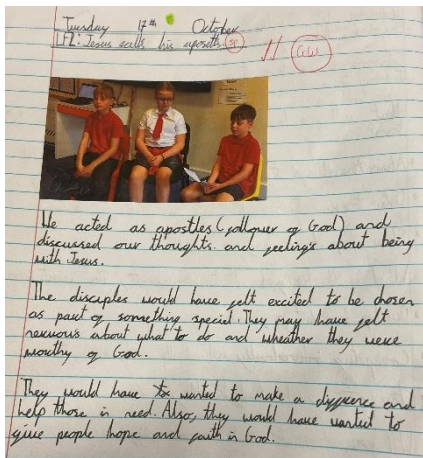 Tuesday 17th October
LFI: Jesus calls his aposetls. sp
We acted as apostles (follower of God) and
discussed our thoughts and feelings about being
with Jesus.
The disciples would have felt excited to be chosen
as part of something special. They may have felt
nervous about what to do and wheather they were
worthy of God.
They would have to wanted to make a difference and
help those in need. Also, they would have wanted to
give people hope and faith in God.